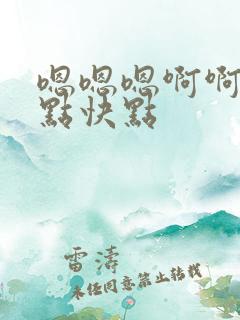 嗯嗯嗯啊啊
點快點
雷濤
未经同意禁止转载